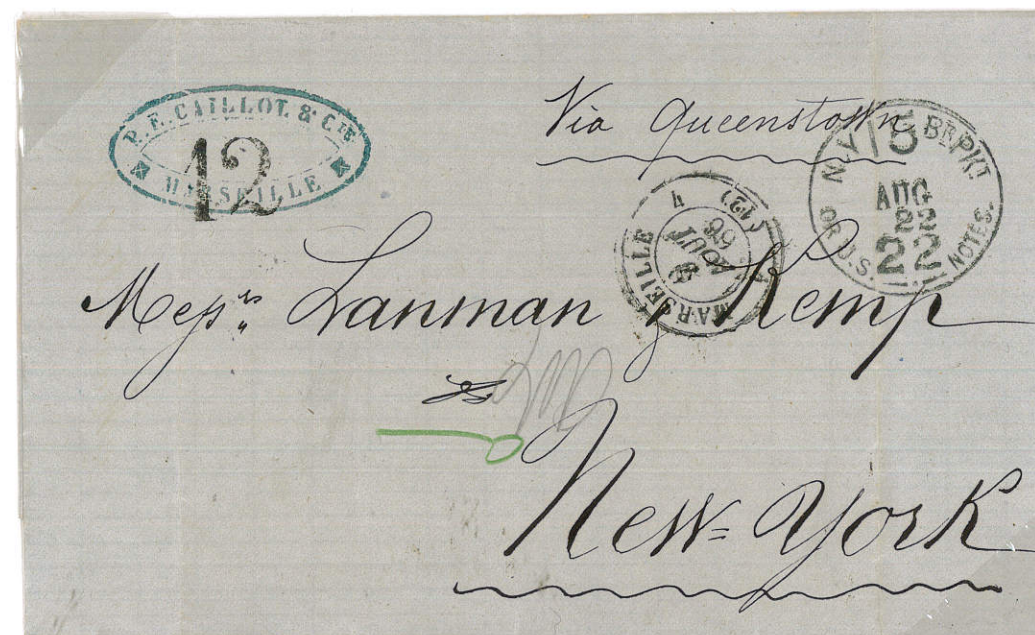 P. F. CAILLOT & CIE
MARSEILLE
12
Via Queenstown
N.Y. 15 BR. PKT.
AUG
22
22
OR U.S. NOTES.
MARSEILLE
4
AOUT
66
(12)
Messrs Lanman & Kemp
New=York